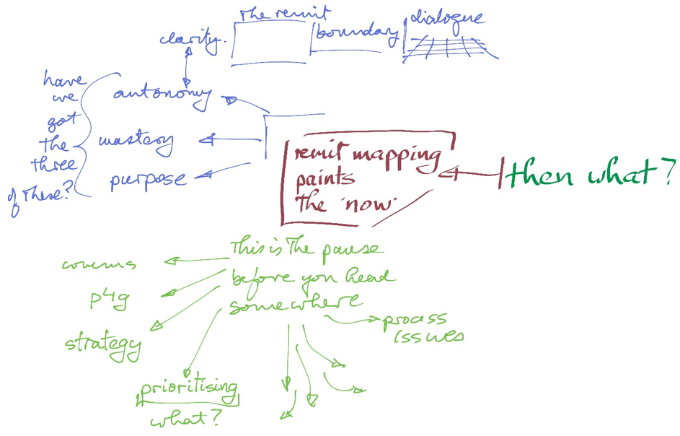 The remit
clarity.
boundary
dialogue
have
we
got
the
three
of these?
autonomy
mastery
purpose
remit mapping
paints
the 'now'
then what?
This is The pause
before you head
somewhere
comms
p4g
strategy
prioritising
what?
process
issues